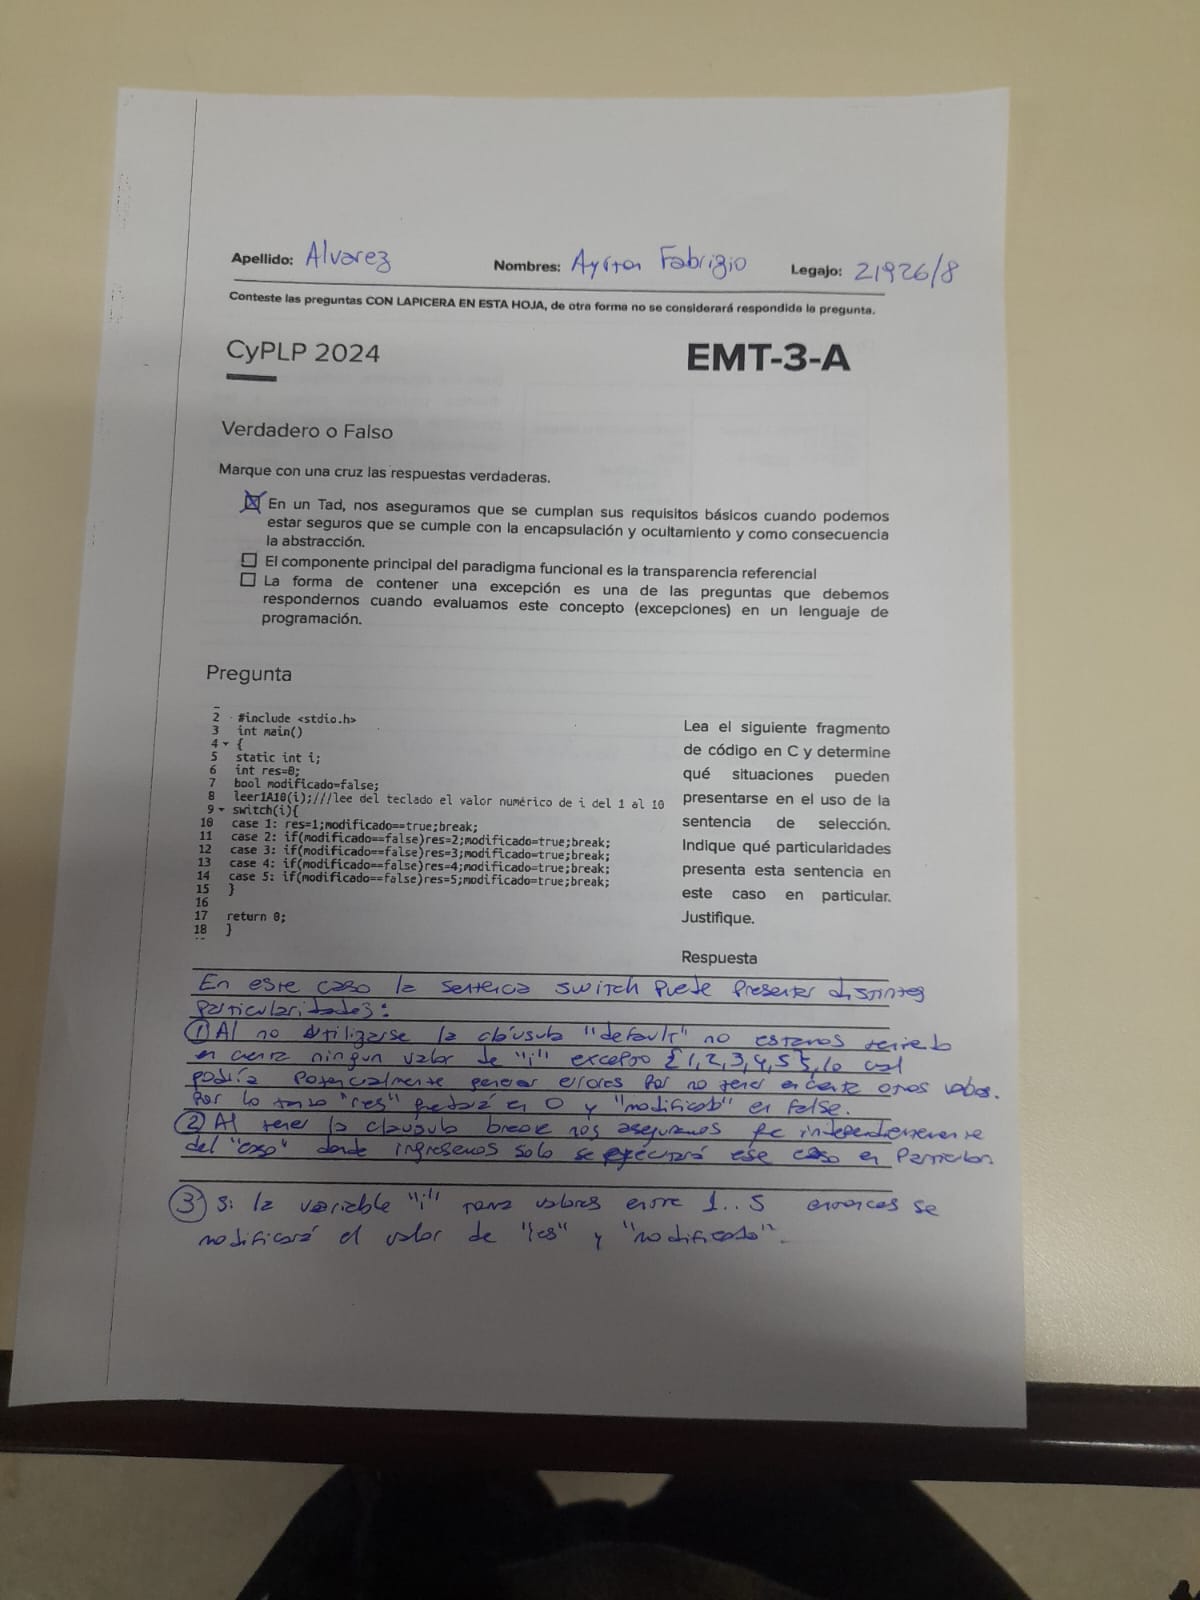 Apellido: Alvarez Nombres: Ayrton Fabrizio Legajo: 21926/8
Conteste las preguntas CON LAPICERA EN ESTA HOJA, de otra forma no se considerará respondida la pregunta.
CyPLP 2024 EMT-3-A
Verdadero o Falso
Marque con una cruz las respuestas verdaderas.
En un Tad, nos aseguramos que se cumplan sus requisitos básicos cuando podemos
estar seguros que se cumple con la encapsulación y ocultamiento y como consecuencia
la abstracción.
El componente principal del paradigma funcional es la transparencia referencial
La forma de contener una excepción es una de las preguntas que debemos
respondernos cuando evaluamos este concepto (excepciones) en un lenguaje de
programación.
Pregunta
2 #include <stdio.h>
3 int main()
4 {
5 static int i;
6 int res=0;
7 bool modificado=false;
8 leer1A10(i);///lee del teclado el valor numérico de i del 1 al 10
9 switch(i){
10 case 1: res=1;modificado==true;break;
11 case 2: if(modificado==false)res=2;modificado=true;break;
12 case 3: if(modificado==false)res=3;modificado=true;break;
13 case 4: if(modificado==false)res=4;modificado=true;break;
14 case 5: if(modificado==false)res=5;modificado=true;break;
15 }
16
17 return 0;
18 }
Lea el siguiente fragmento
de código en C y determine
qué situaciones pueden
presentarse en el uso de la
sentencia de selección.
Indique qué particularidades
presenta esta sentencia en
este caso en particular.
Justifique.
Respuesta
En este caso la sentencia switch puede presentar distintas
particularidades:
① Al no utilizarse la cláusula "default" no estamos teniendo
en cuenta ningun valor de "i" excepto {1,2,3,4,5}, lo cual
podría potencialmente generar errores por no tener en cuenta otros valores.
Por lo tanto "res" quedará en 0 y "modificado" en false.
② Al tener la clausula break nos aseguramos que independientemente
del "caso" donde ingresemos solo se ejecutará ese caso en particular.
③ Si la variable "i" toma valores entre 1..5 entonces se
modificará el valor de "res" y "modificado".